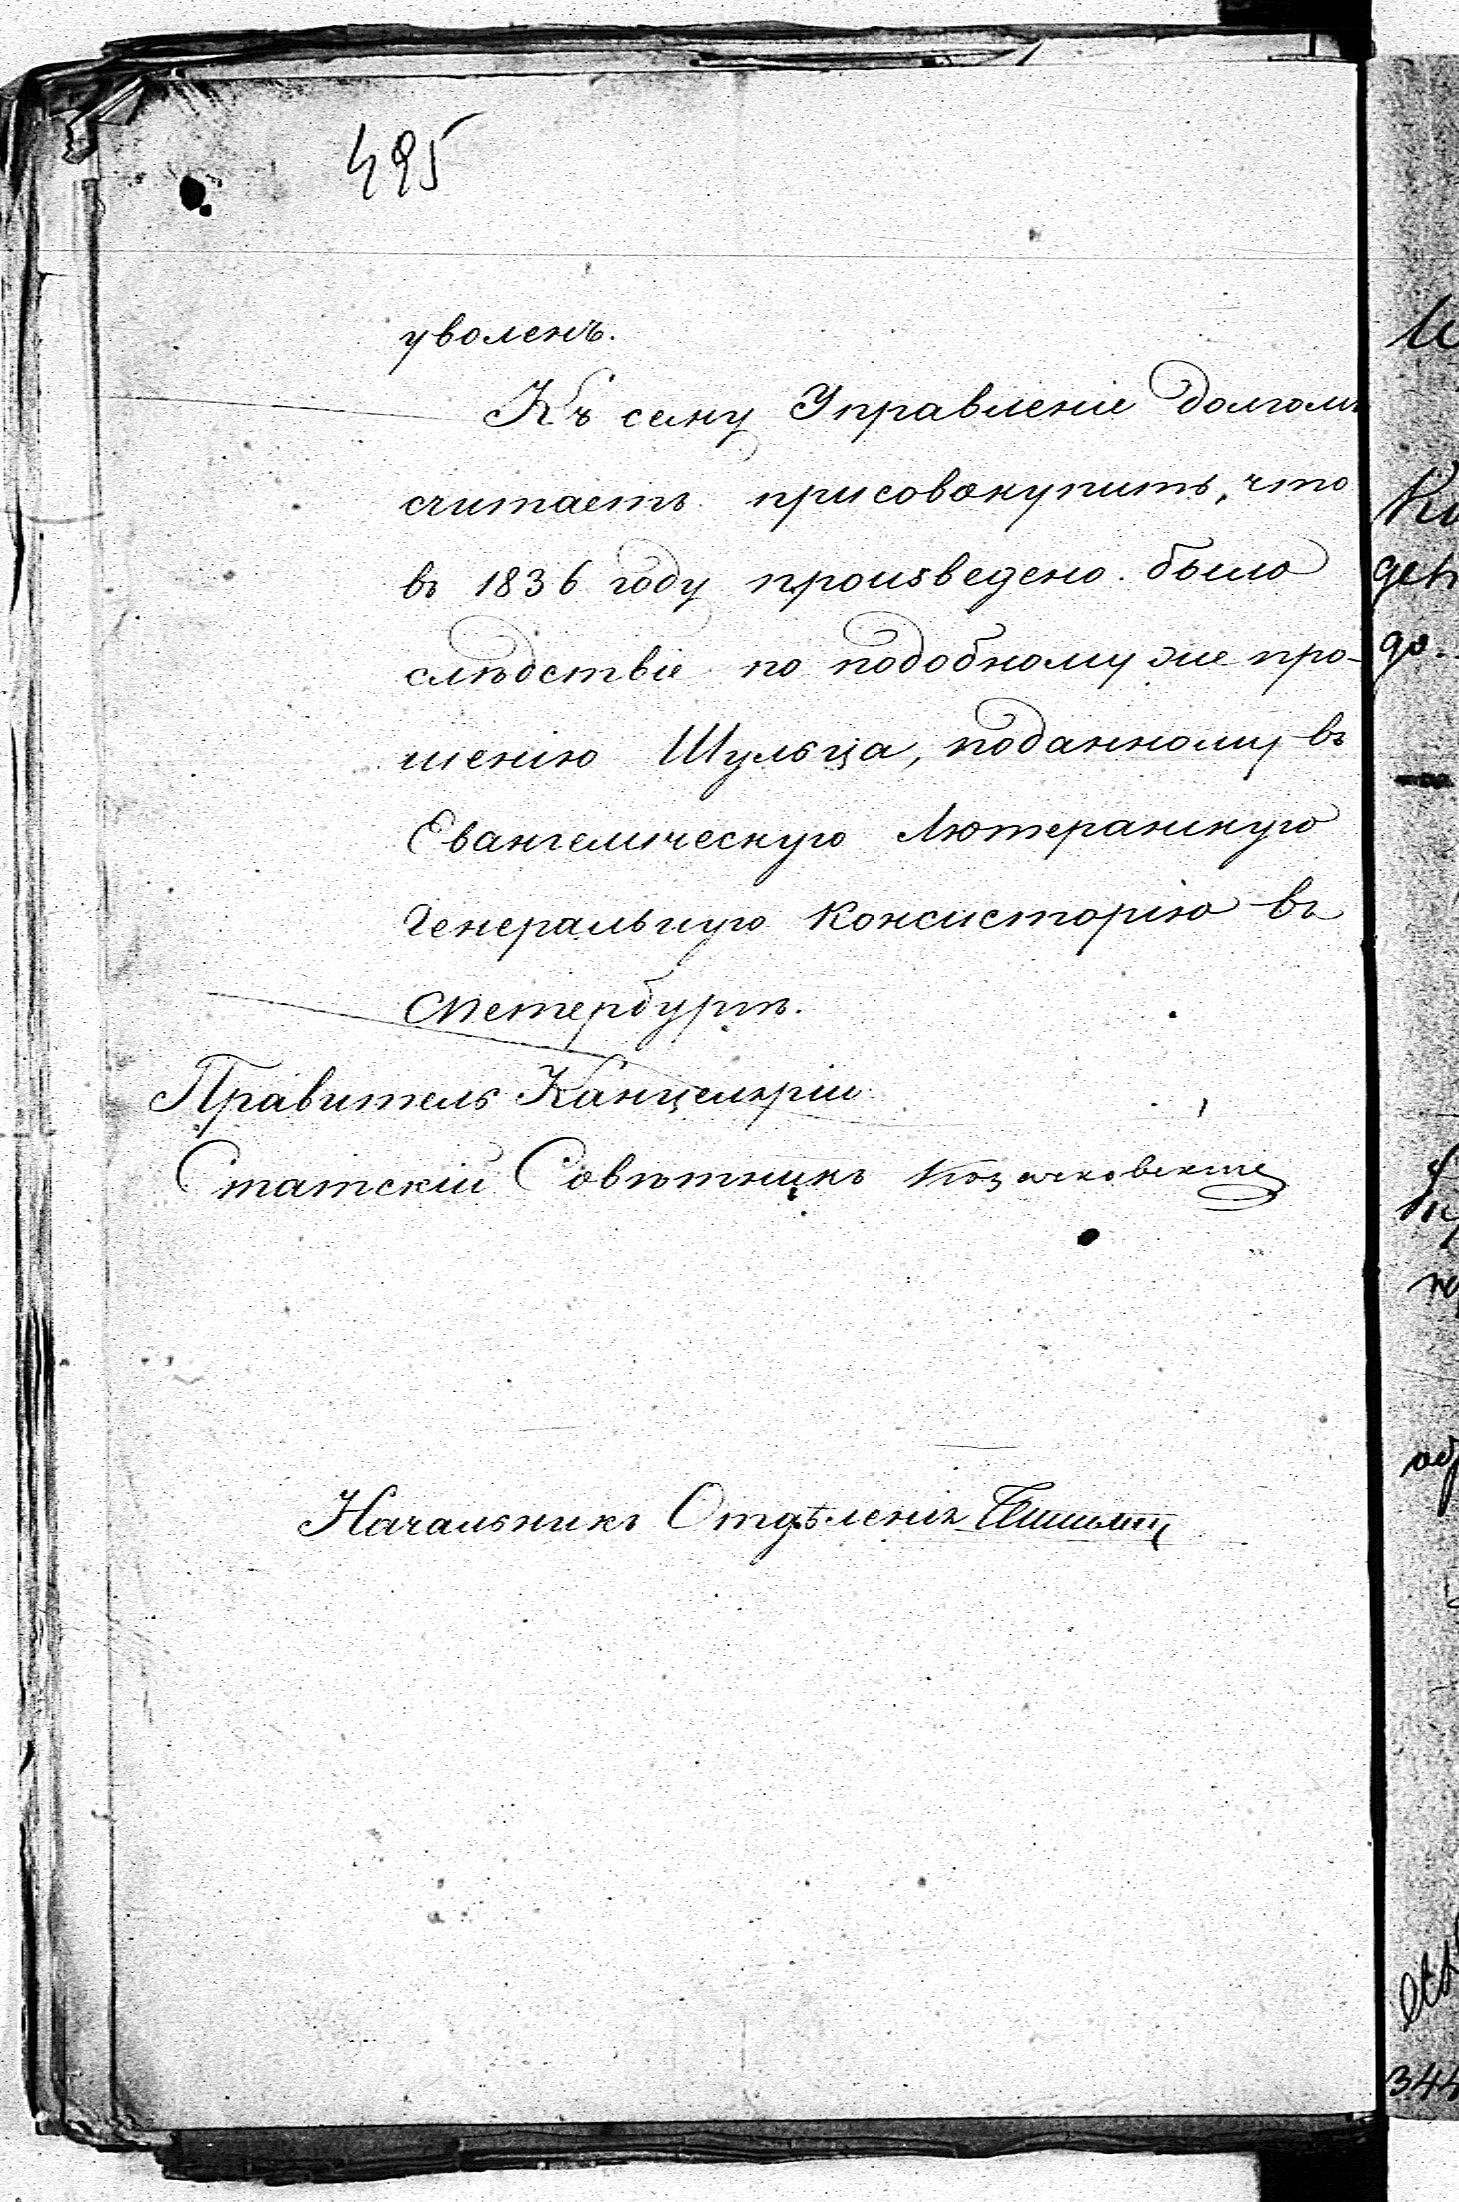 495
уволенъ.
Къ сему Управленіе долгомъ
считаетъ присовокупить, что
въ 1836 году произведено было
слѣдствіе по подобному же про-
шенію Шульца, поданному въ
Евангелическую Лютеранскую
Генеральную Консисторію въ
СПетербургѣ.
Правитель Канцеляріи
Статскій Совѣтникъ
Начальникъ Отдѣленія
344